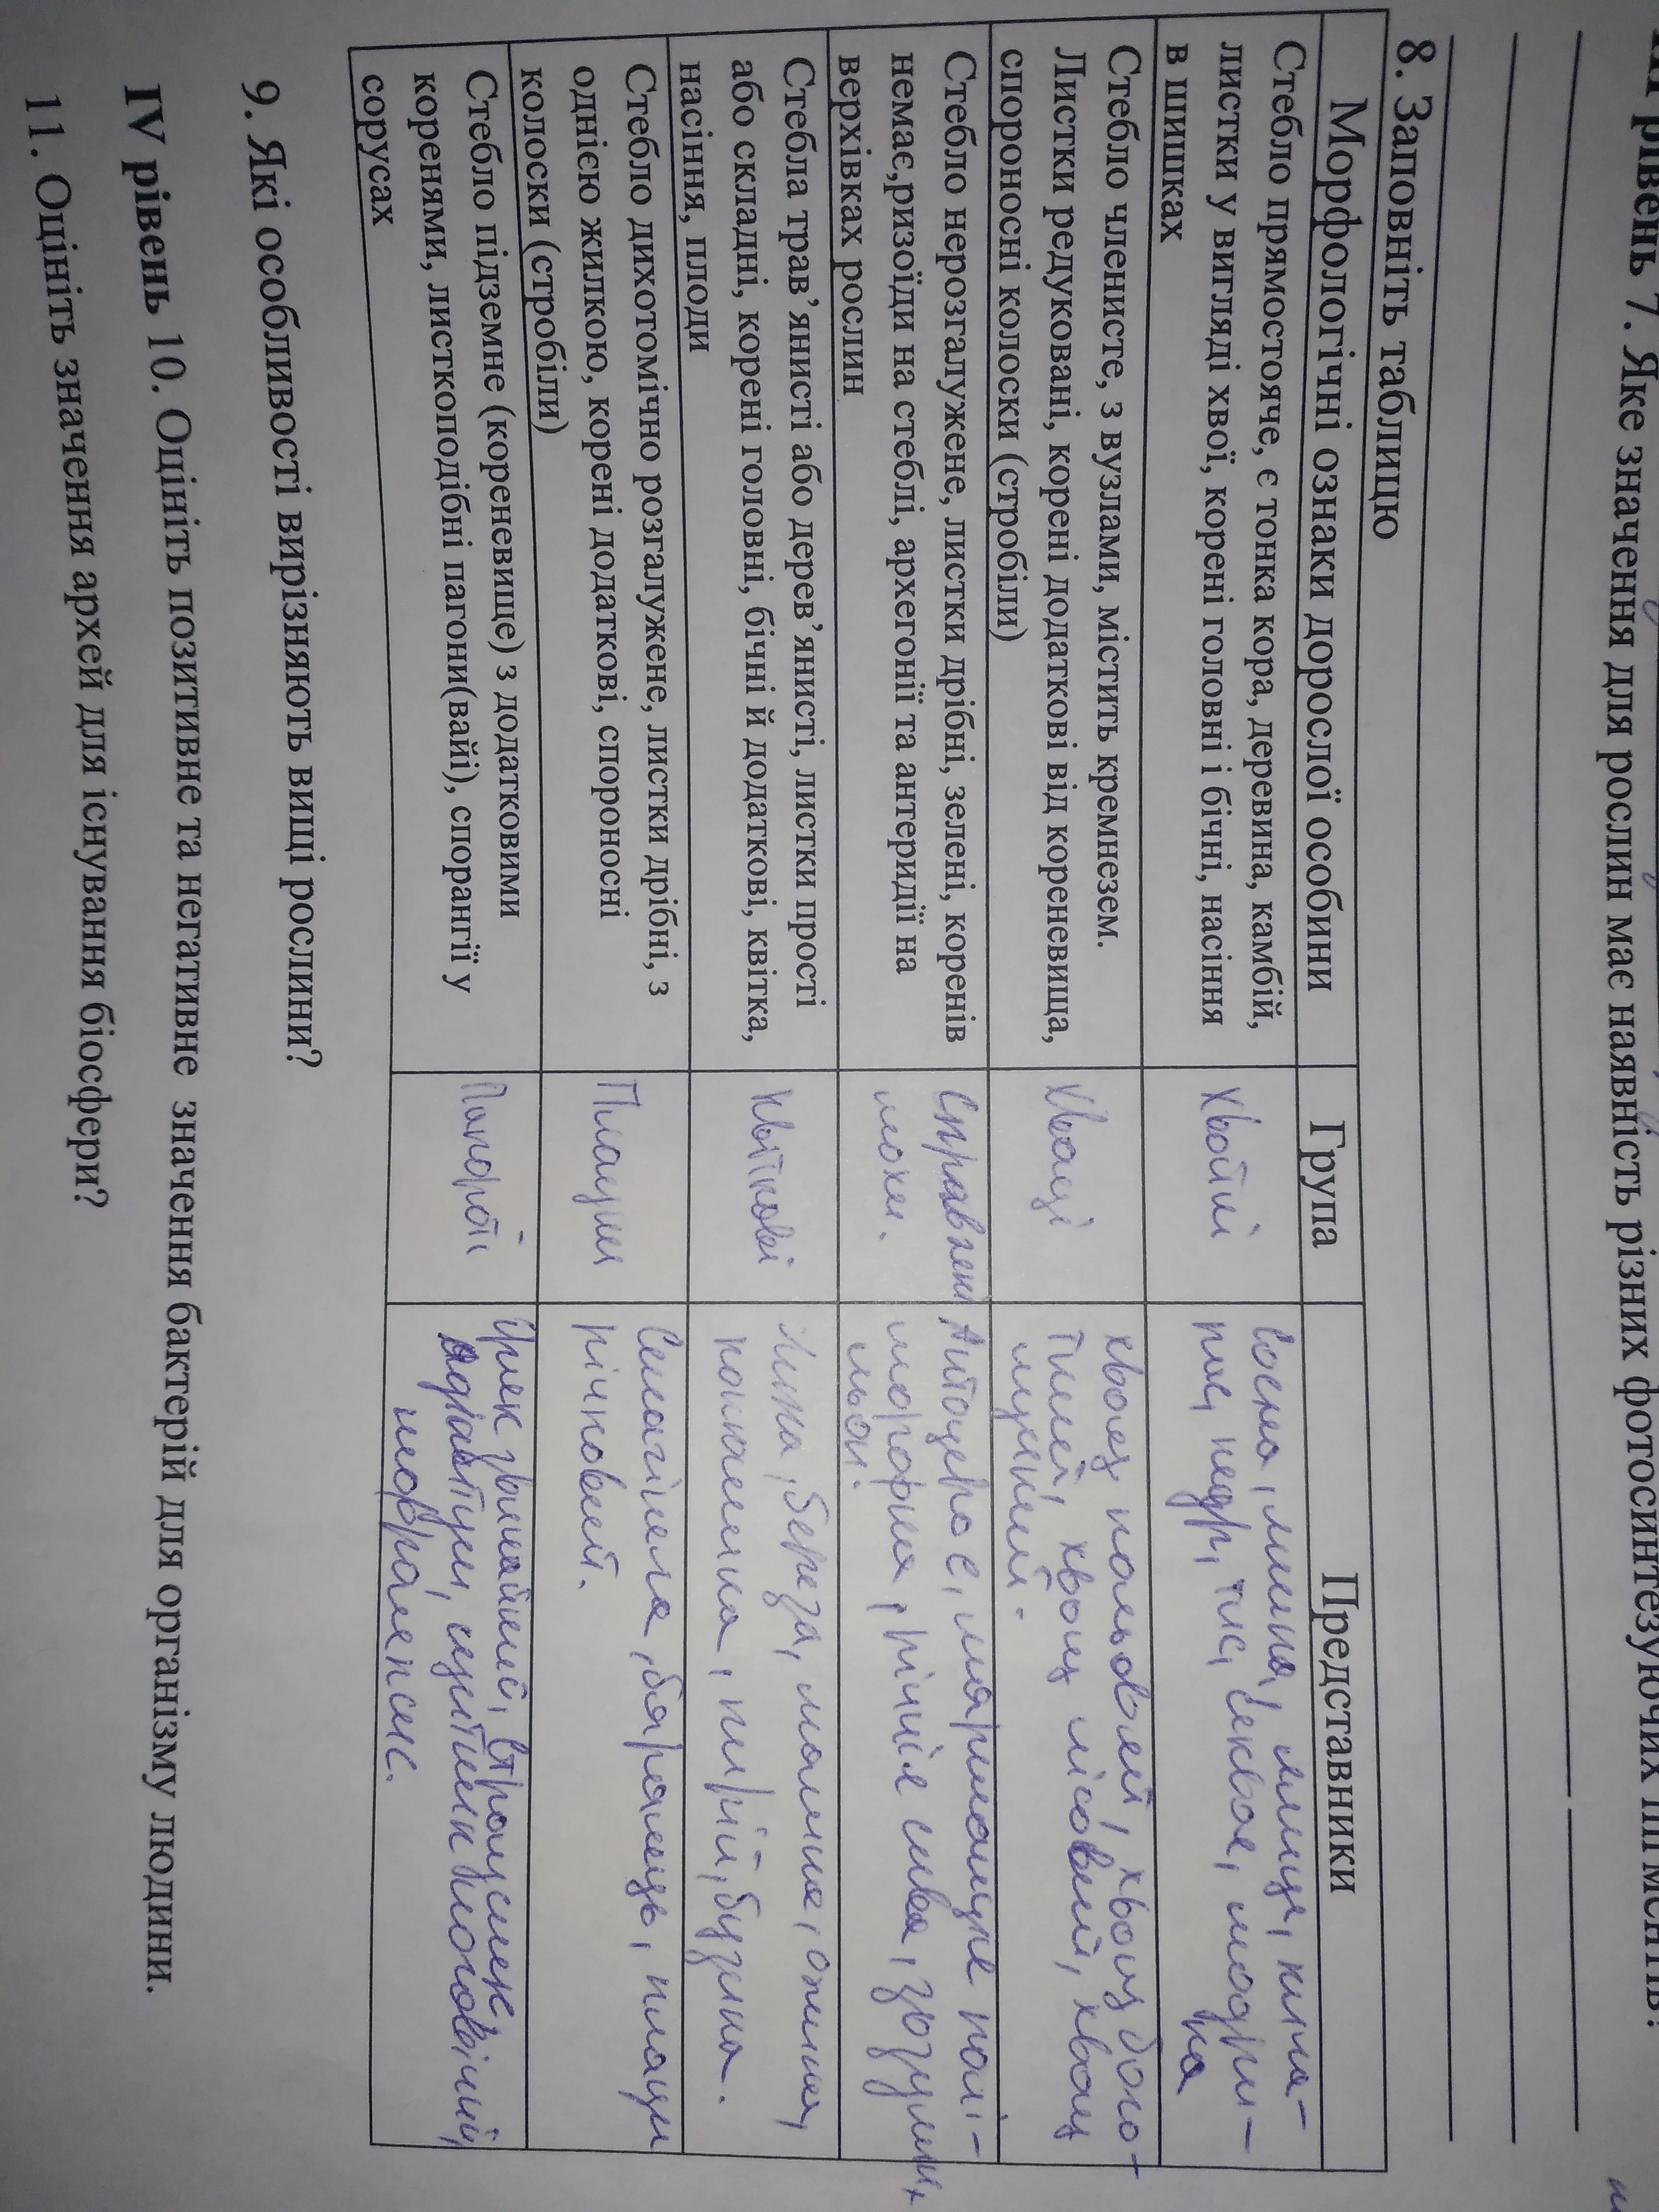 рівень 7. Яке значення для рослин має наявність різних фотосинтезуючих пігментів?
8. Заповніть таблицю
Морфологічні ознаки дорослої особини
Група
Представники
Стебло прямостояче, є тонка кора, деревина, камбій,
листки у вигляді хвої, корені головні і бічні, насіння
в шишках
Хвойні
Сосна, ялина, ялиця, кипа-
рис, кедр, тис, секвоя, модри-
на
Стебло членисте, з вузлами, містить кремнезем.
Листки редуковані, корені додаткові від кореневища,
спороносні колоски (стробіли)
Хвощі
хвощ польовий, хвощ боло-
тний, хвощ лісовий, хвощ
лучний.
Стебло нерозгалужене, листки дрібні, зелені, коренів
немає,ризоїди на стеблі, архегонії та антеридії на
верхівках рослин
Справжні
мохи.
Антоцерос, маршанція полі-
морфна, річчія сиза, зозулин
льон.
Стебла трав’янисті або дерев’янисті, листки прості
або складні, корені головні, бічні й додаткові, квітка,
насіння, плоди
Квіткові
Липа, береза, малина, ожина,
конюшина, пирій, бузина.
Стебло дихотомічно розгалужене, листки дрібні, з
однією жилкою, корені додаткові, спороносні
колоски (стробіли)
Плауни
Селагінела, баранець, плаун
річковий.
Стебло підземне (кореневище) з додатковими
коренями, листкоподібні пагони(вайї), спорангії у
сорусах
Папороті
Орляк звичайний, страусник,
адіантум, щитник чоловічий,
нефролепис.
9. Які особливості вирізняють вищі рослини?
IV рівень 10. Оцініть позитивне та негативне значення бактерій для організму людини.
11. Оцініть значення архей для існування біосфери?